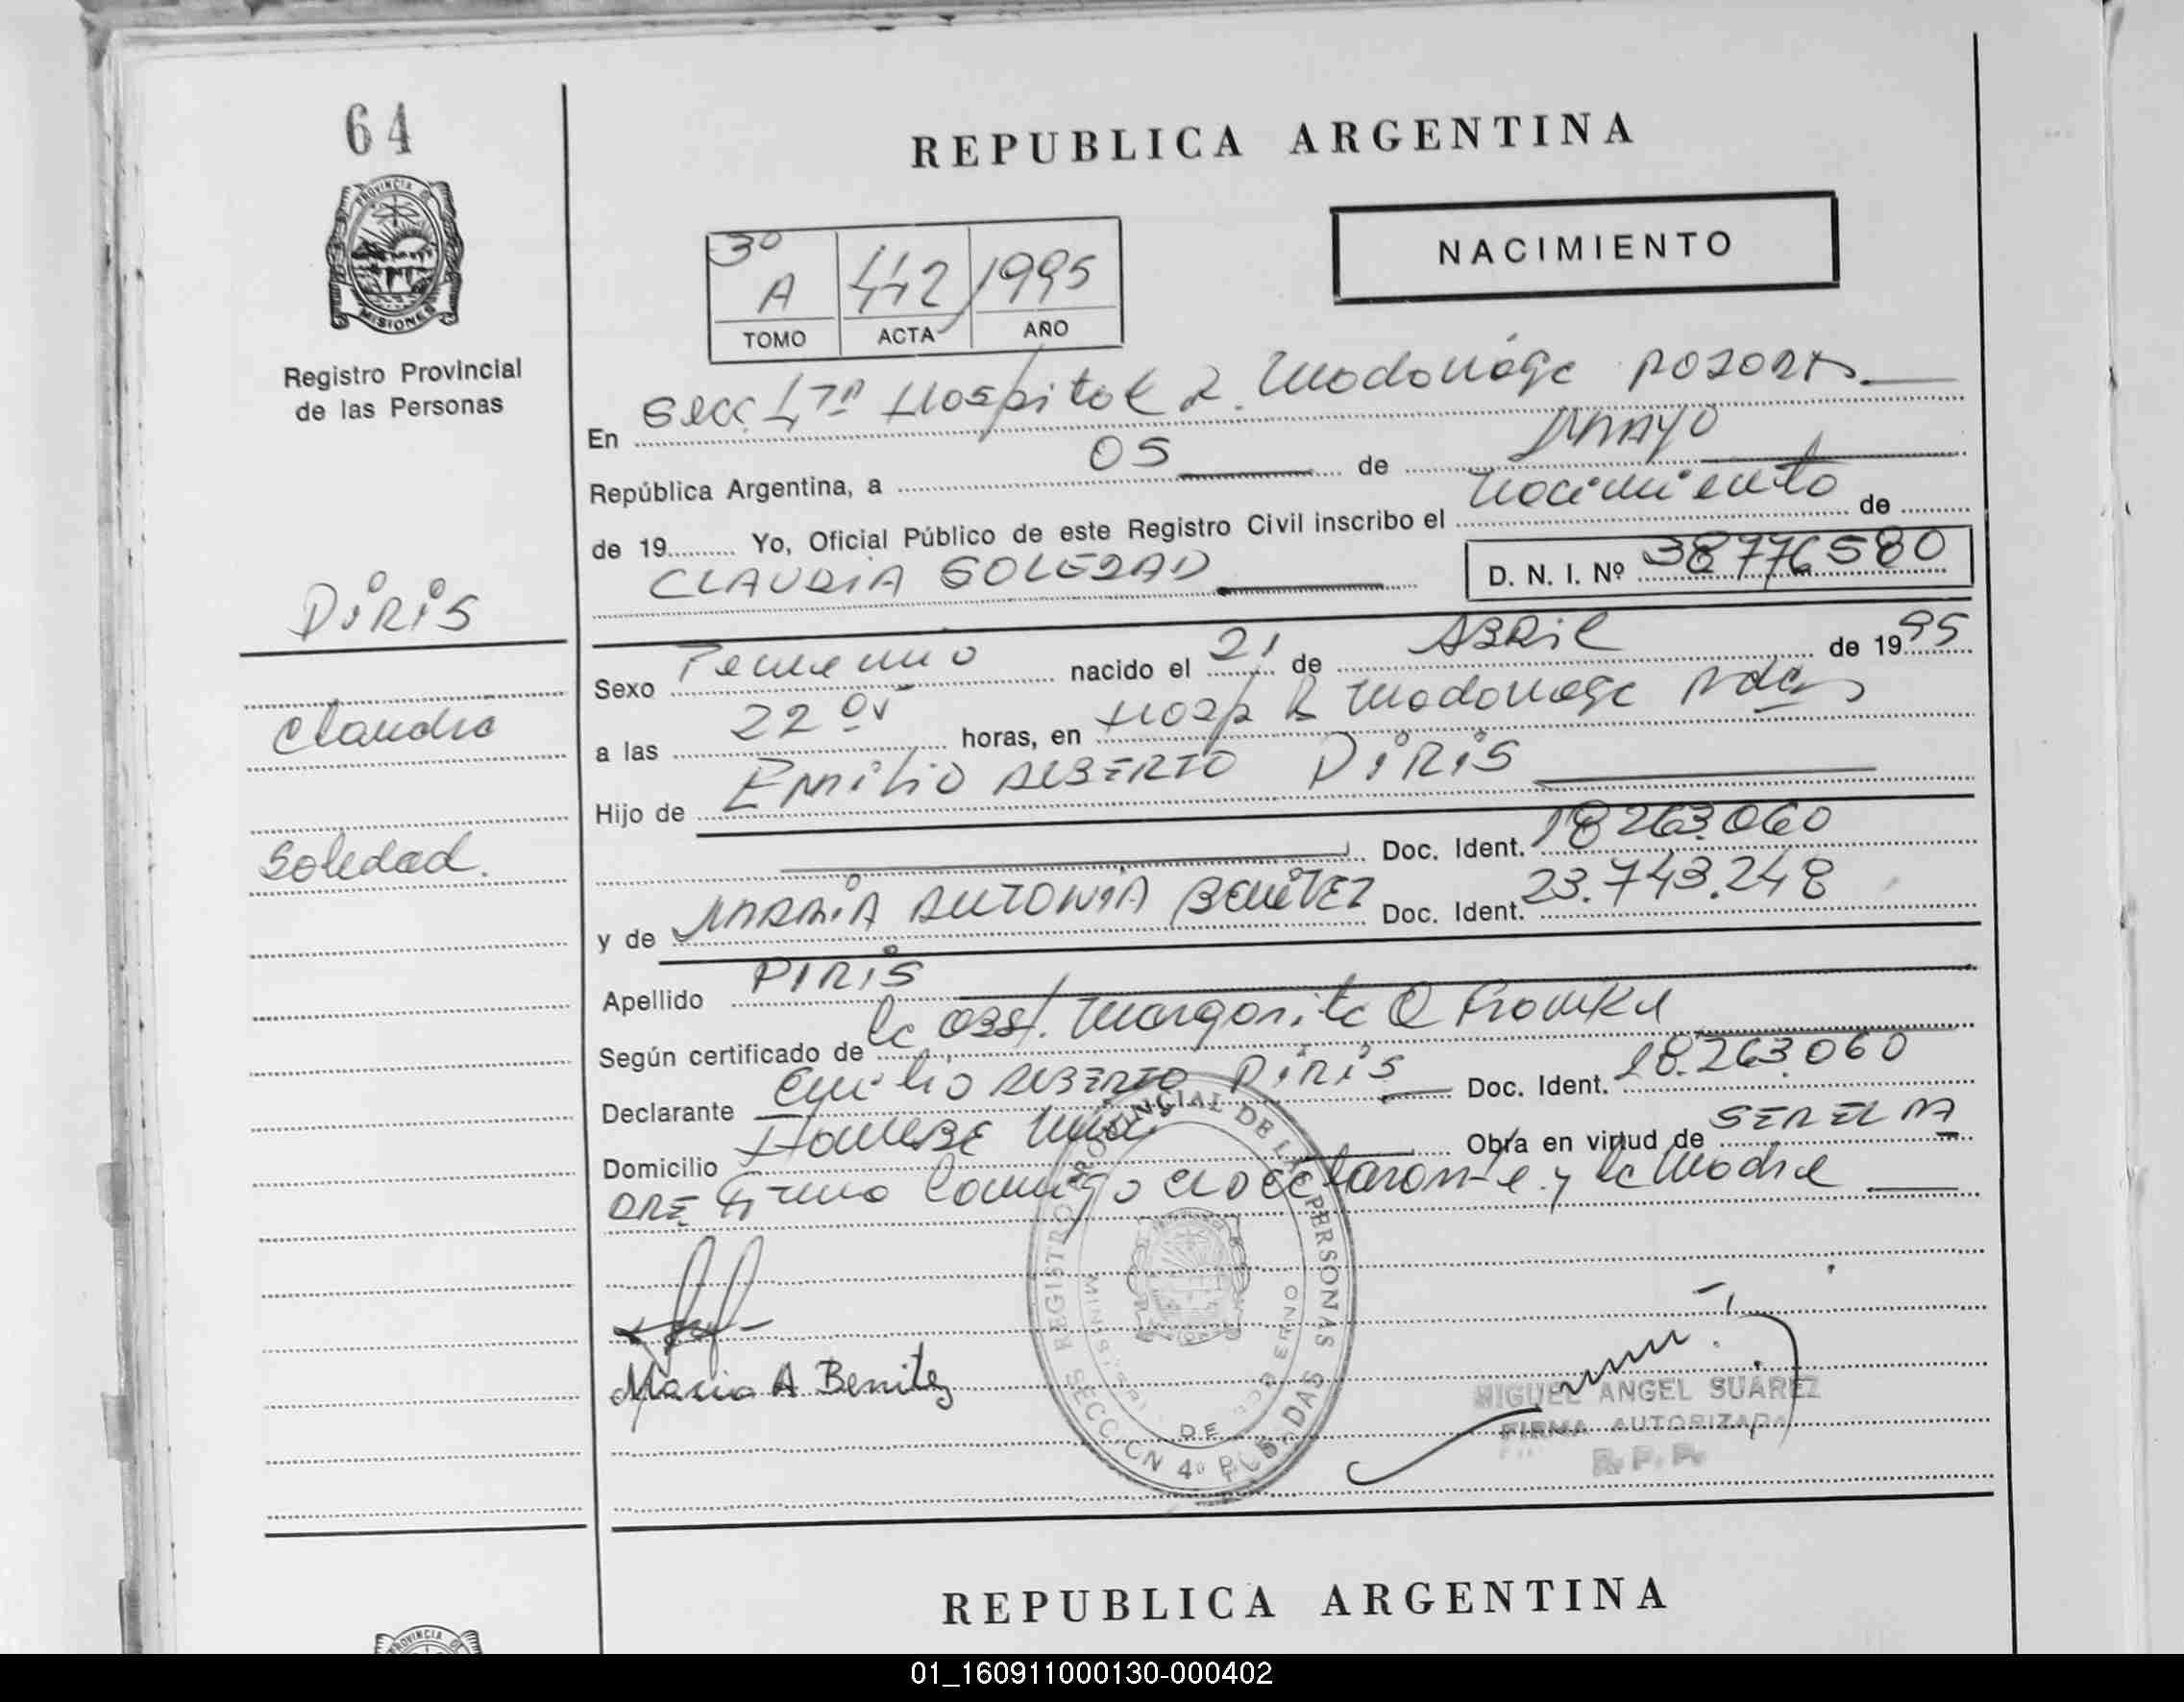 64
REPUBLICA ARGENTINA
NACIMIENTO
3º
A 442 1995
TOMO ACTA AÑO
PROVINCIA DE
MISIONES
Registro Provincial
de las Personas
En Secc 4ta Hospital R. Madariaga Posadas
República Argentina, a 05 de Mayo
de 19 Yo, Oficial Público de este Registro Civil inscribo el Nacimiento de
CLAUDIA SOLEDAD D. N. I. Nº 38776580
PIRIS
Claudia
Soledad.
Sexo Femenino nacido el 21 de ABRIL de 1995
a las 22 horas, en Hosp R Madariaga Pdas
Hijo de EMILIO ALBERTO PIRIS
Doc. Ident. 18263.060
y de MARIA ANTONIA BENITEZ Doc. Ident. 23.743.248
Apellido PIRIS
Según certificado de la Obst. Margarita
Declarante Emilio ALBERTO PIRIS Doc. Ident. 18.263.060
Domicilio Obra en virtud de SER EL PA
DRE Firma Conmigo el declarante y la Madre
REGISTRO PROVINCIAL DE LAS PERSONAS
SECCION 4º POSADAS
MINISTERIO DE GOBIERNO
Maria A Benitez
MIGUEL ANGEL SUAREZ
FIRMA AUTORIZADA
R. P. P.
REPUBLICA ARGENTINA
PROVINCIA
01_160911000130-000402